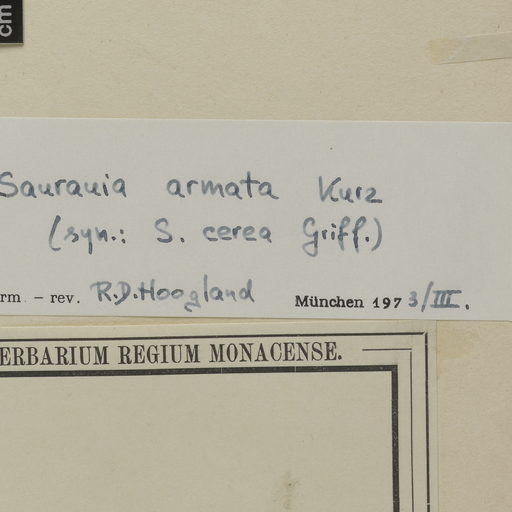 cm
Saurauia armata Kurz
(syn.: S. cerea Griff.)
rm. – rev. R.D.Hoogland München 1973/III.
ERBARIUM REGIUM MONACENSE.